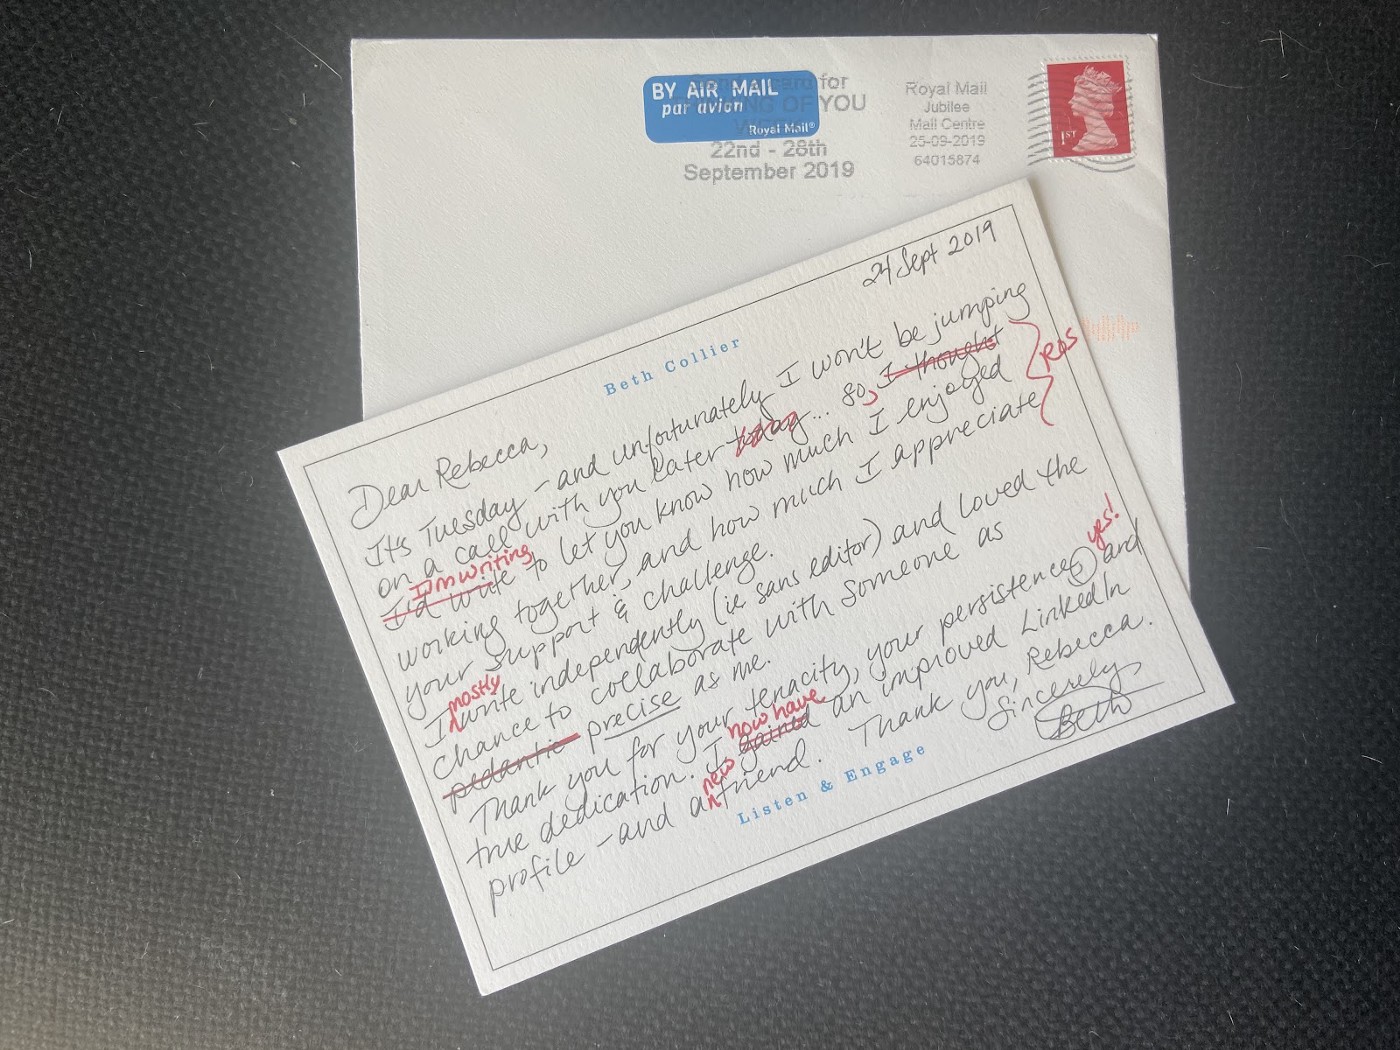 BY AIR MAIL
par avion
Royal Mail®
card for
OF YOU
22nd - 28th
September 2019
Royal Mail
Jubilee
Mail Centre
25-09-2019
64015874
1ST
24 Sept 2019
Beth Collier
Dear Rebecca,
It's Tuesday - and unfortunately I won't be jumping
on a call with you later today... so, I thought
I'm writing
I'd write to let you know how much I enjoyed
working together, and how much I appreciate
your support & challenge.
mostly
I write independently (ie sans editor) and loved the
chance to collaborate with someone as
pedantic precise as me.
yes!
Thank you for your tenacity, your persistence, and
now have
true dedication. I gained an improved LinkedIn
new
profile - and a friend. Thank you, Rebecca.
Sincerely,
Beth
Listen & Engage